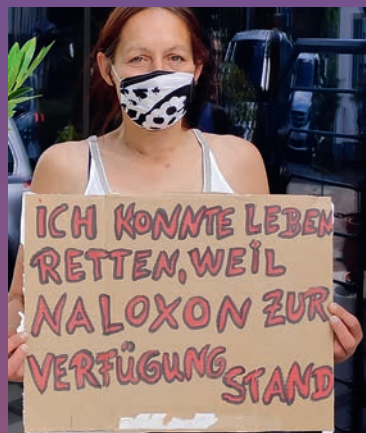 ICH KONNTE LEBEN
RETTEN, WEIL
NALOXON ZUR
VERFÜGUNG
STAND